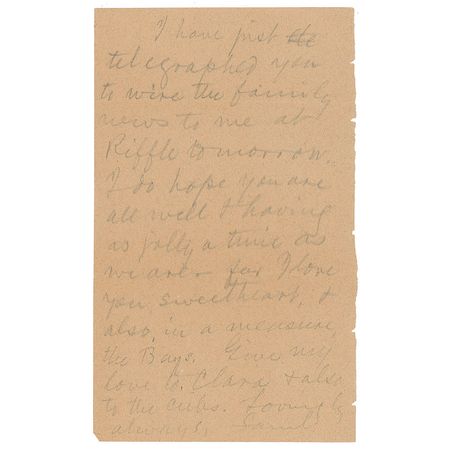 I have just the
telegraphed you
to wire the family
news to me at
Riffle tomorrow.
I do hope you are
all well & having
as jolly a time as
we are - for I love
you, sweetheart, &
also, in a measure
the Bays. Give my
love to Clara & also
to the cubs. Lovingly
always, Saml